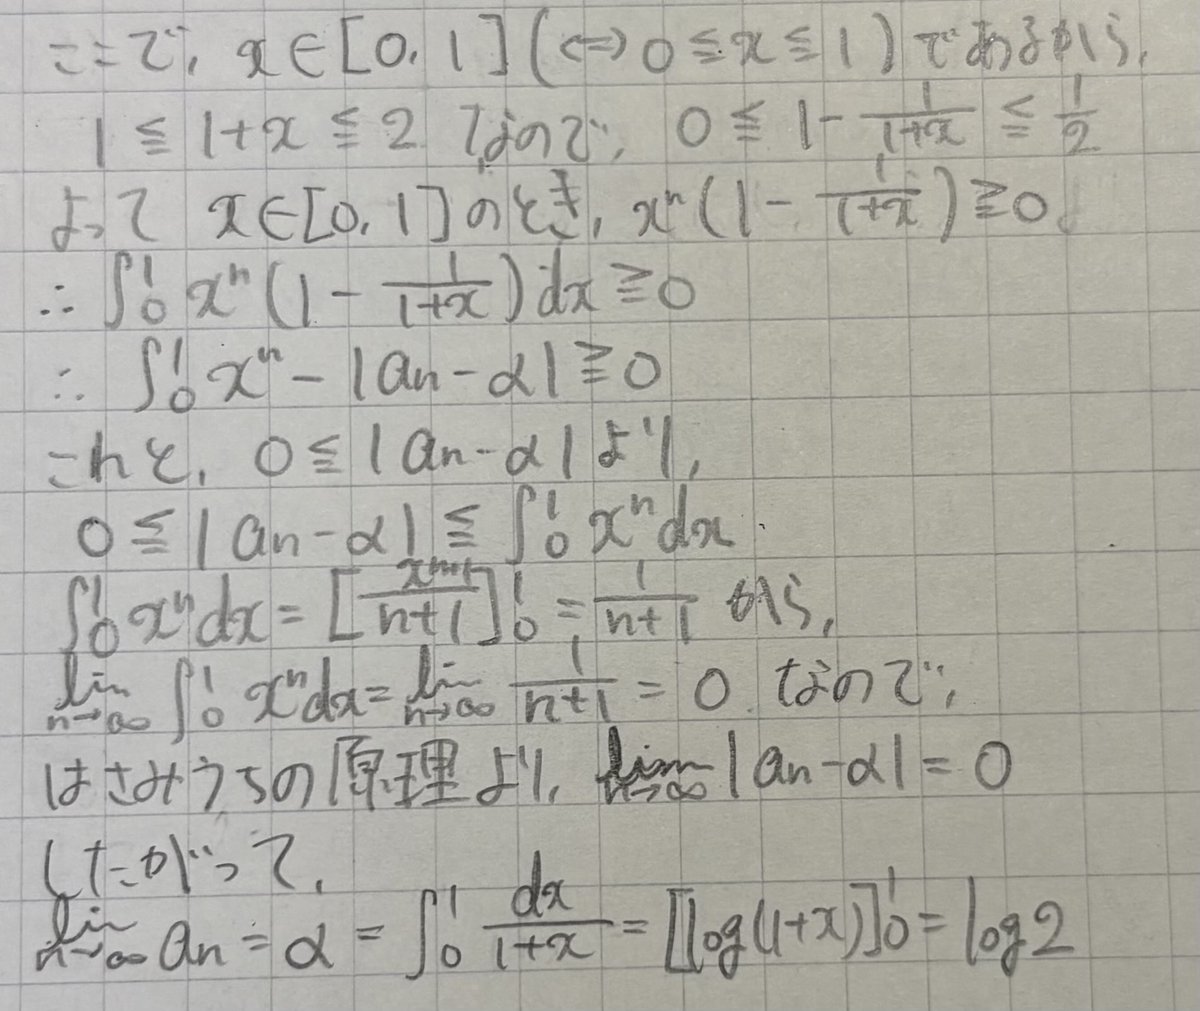 ここで, x∈[0, 1] (⇔ 0≦x≦1) であるから,
1≦1+x≦2 なので, 0≦1-1/(1+x)≦1/2
よって x∈[0, 1]のとき, xⁿ(1-1/(1+x))≧0
∴ ∫₀¹ xⁿ(1-1/(1+x))dx≧0
∴ ∫₀¹ xⁿ-|an-α|≧0
これと, 0≦|an-α|より,
0≦|an-α|≦∫₀¹ xⁿdx.
∫₀¹ xⁿdx=[xⁿ⁺¹/(n+1)]₀¹=1/(n+1) から,
lim n→∞ ∫₀¹ xⁿdx=lim n→∞ 1/(n+1)=0 なので,
はさみうちの原理より, lim n→∞ |an-α|=0
したがって,
lim n→∞ an=α=∫₀¹ dx/(1+x)=[log(1+x)]₀¹=log2